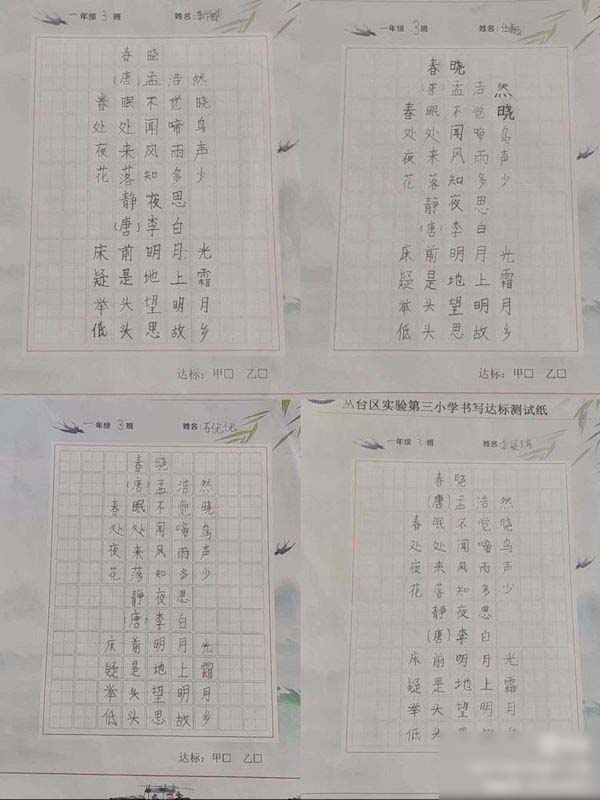 一年级 3 班 姓名:
春晓
(唐)孟浩然
春眠不觉晓
处处闻啼鸟
夜来风雨声
花落知多少
静夜思
(唐)李白
床前明月光
疑是地上霜
举头望明月
低头思故乡
达标：甲□ 乙□
一年级 3 班 姓名:
春晓
(唐)孟浩然
春眠不觉晓
处处闻啼鸟
夜来风雨声
花落知多少
静夜思
(唐)李白
床前明月光
疑是地上霜
举头望明月
低头思故乡
达标：甲□ 乙□
一年级 3 班 姓名:石优优
春晓
(唐)孟浩然
春眠不觉晓
处处闻啼鸟
夜来风雨声
花落知多少
静夜思
(唐)李白
床前明月光
疑是地上霜
举头望明月
低头思故乡
达标：甲□ 乙□
丛台区实验第三小学书写达标测试纸
一年级 3 班 姓名:
春晓
(唐)孟浩然
春眠不觉晓
处处闻啼鸟
夜来风雨声
花落知多少
静夜思
(唐)李白
床前明月光
疑是地上霜
举头望明月
低头思